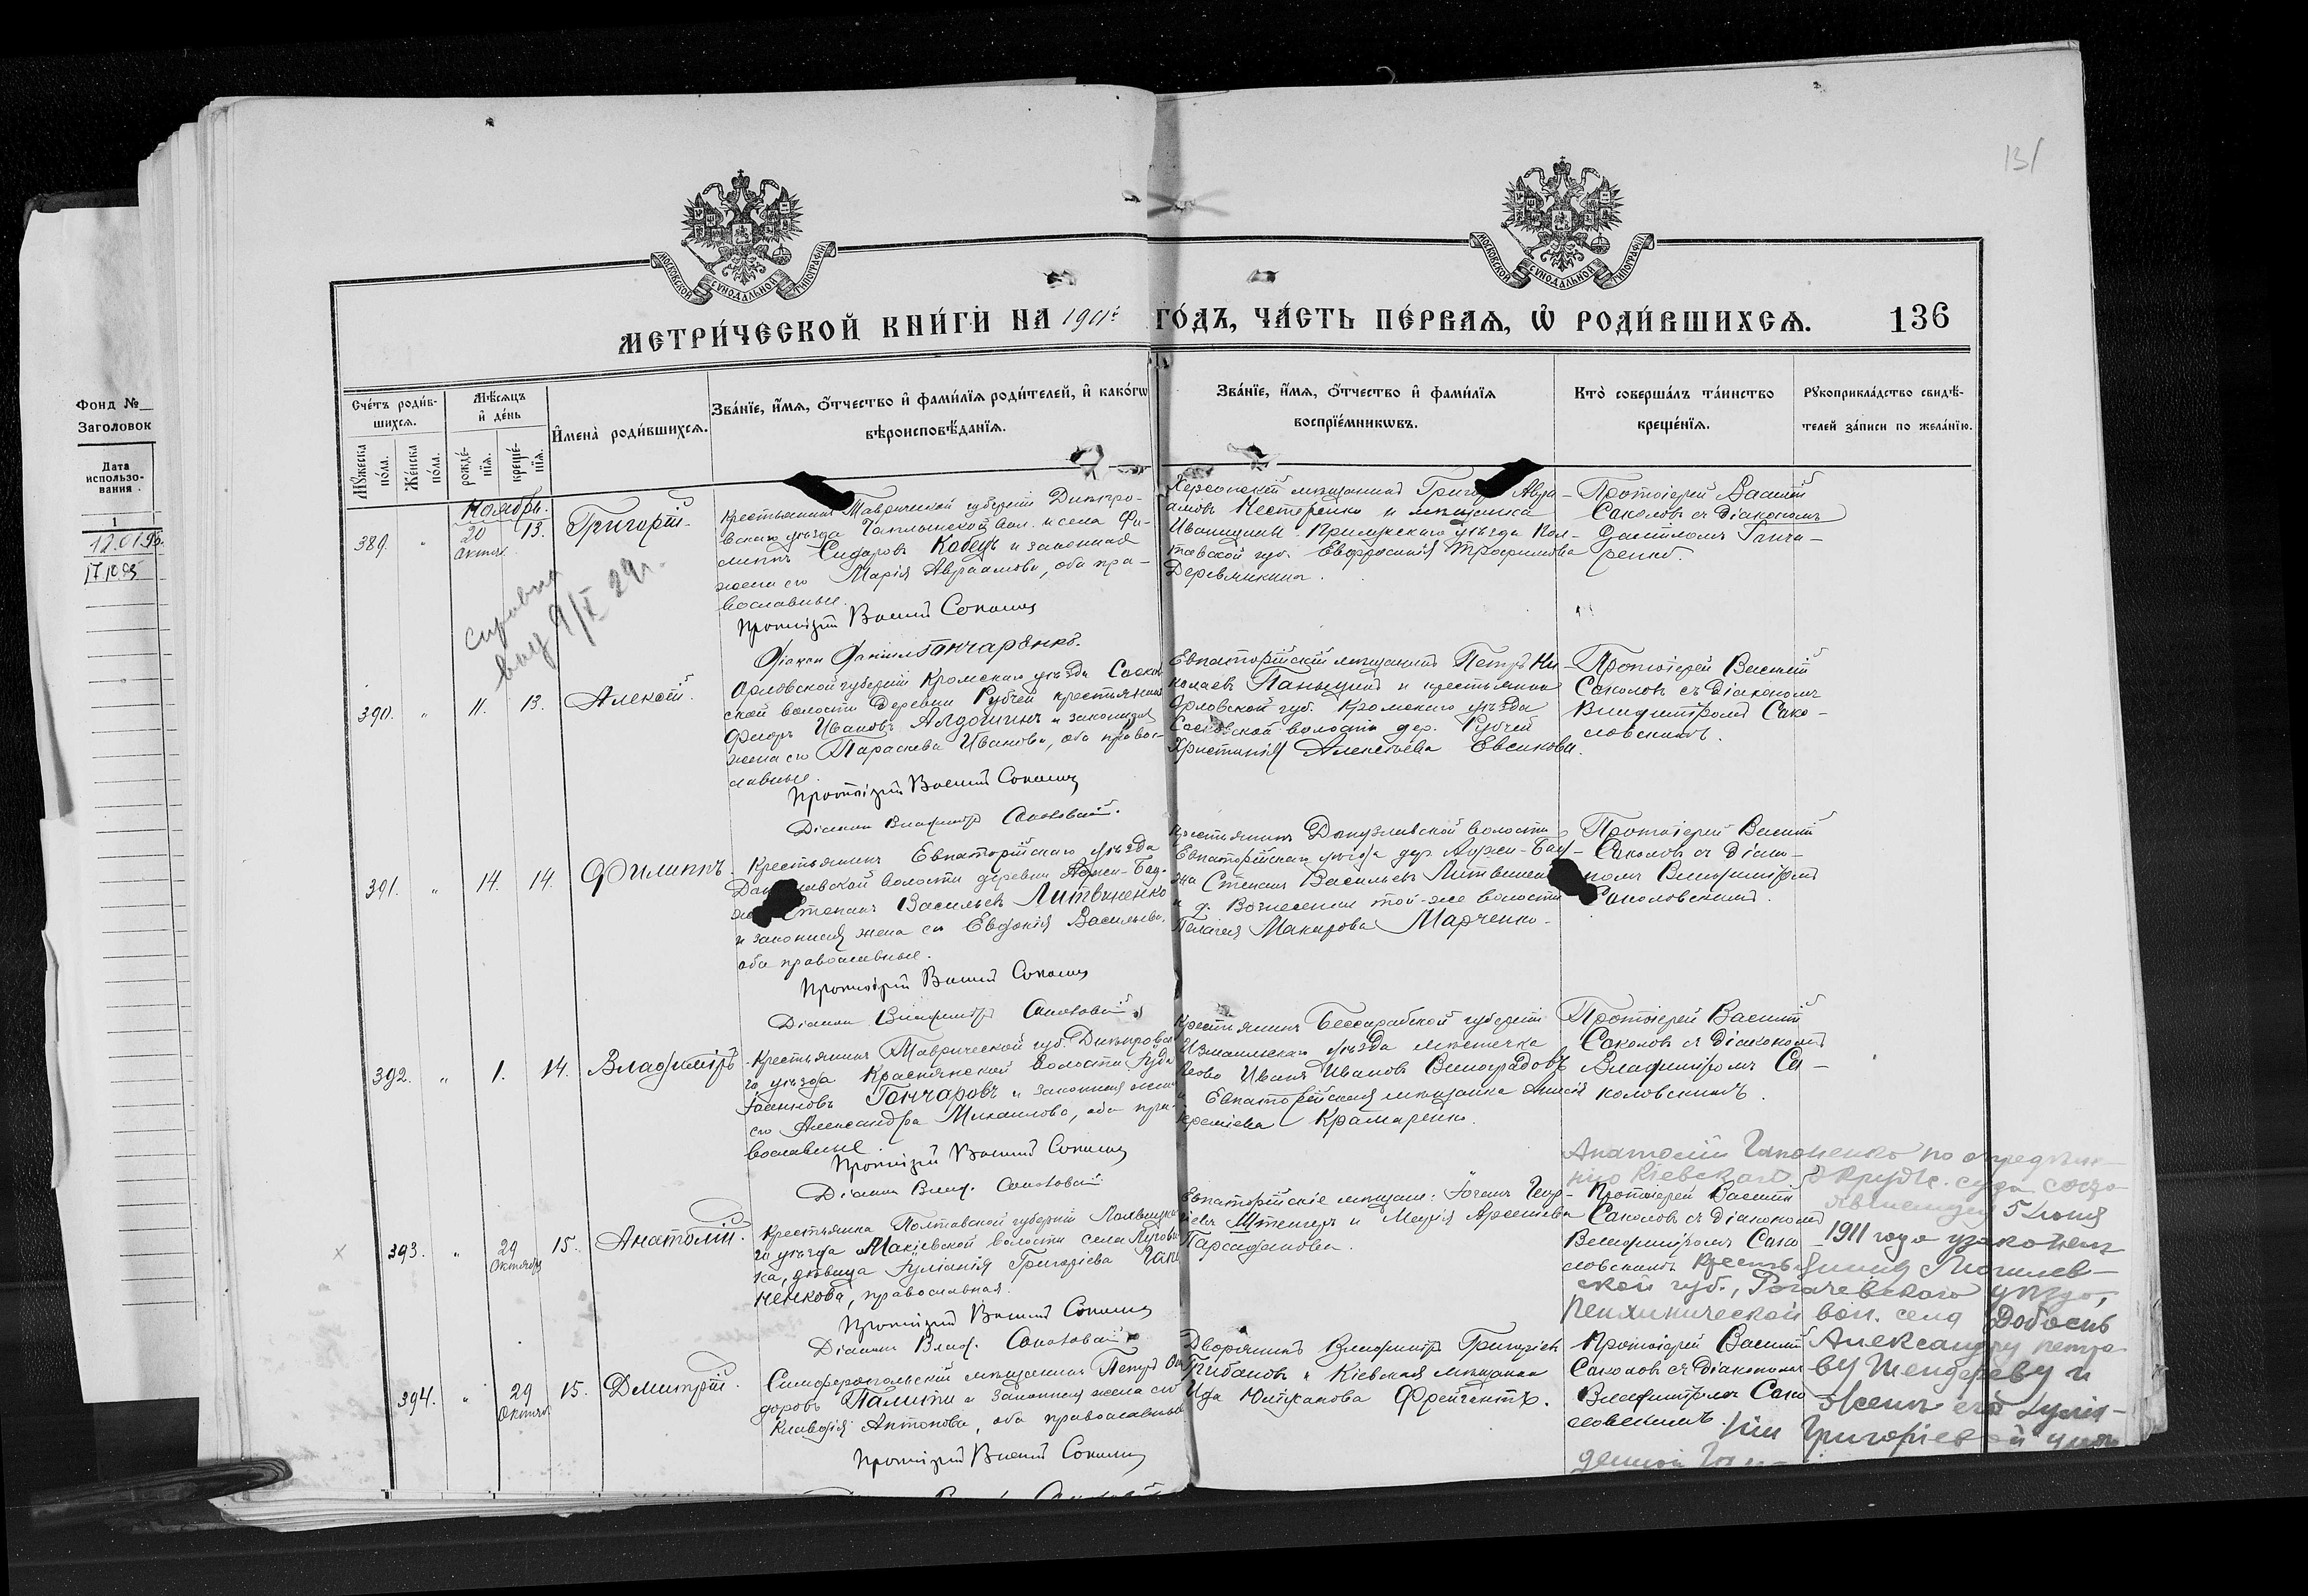 131
Фонд №
Заголовок
Дата
использо-
вания
1
12.01.95
17.10.95
МОСКОВСКОЙ СѴНОДАЛЬНОЙ ТИПОГРАФІИ
МОСКОВСКОЙ СѴНОДАЛЬНОЙ ТИПОГРАФІИ
МЕТРИ́ЧЕСКОЙ КНИ́ГИ НА 1911й ГО́ДЪ, ЧА́СТЬ ПЕ́РВАѦ, Ѡ РОДИ́ВШИХСѦ. 136
Сче́тъ роди́в-
шихсѧ.
Мꙋ́жеска по́ла.
Же́нска по́ла.
Мѣ́сѧцъ
и де́нь
рожде́-
нїѧ.
креще́-
нїѧ.
Имена̀ роди́вшихсѧ.
Зва́нїе, и́мѧ, о́тчество и фами́лїѧ роди́телей, и како́гѡ
вѣроисповѣ́данїѧ.
Зва́нїе, и́мѧ, о́тчество и фами́лїѧ
воспрїе́мникѡвъ.
Кто̀ соверша́лъ та́инство
креще́нїѧ.
Рꙋкоприкла́дство свидѣ́-
телей за́писи по жела́нїю.
Ноябрь.
389. " 20 Октяб. 13. Григорій.
Крестьянинъ Таврической губерніи Днѣпро-
вскаго уѣзда Чаплынской вол. и села Фи-
липпъ Сидоровъ Кобецъ и законная
жена его Марія Авраамова, оба пра-
вославные.
Протоіерей Василій Соколовъ
Діаконъ Даніилъ Гончаренко.
Херсонскій мѣщанинъ Григорій Авра-
амовъ Нестеренко и мѣщанка
Иваницкая Прилукскаго уѣзда Пол-
тавской губ. Евфросинія Трофимова
Деревянкина.
Протоіерей Василій
Соколовъ съ діакономъ
Даніиломъ Гонча-
ренко.
справка
выд 9/X 29 г.
390. " 11. 13. Алексій.
Орловской губерніи Кромскаго уѣзда Сосков-
ской волости деревни Рубчей крестьянинъ
Флоръ Ивановъ Алдошинъ и законная
жена его Параскева Иванова, оба правос-
лавные.
Протоіерей Василій Соколовъ
Діаконъ Владиміръ Соколовскій.
Евпаторійскій мѣщанинъ Петръ Ни-
колаевъ Паныцкій и крестьянка
Орловской губ. Кромскаго уѣзда
Сосковской волости дер. Рубчей
Христина Алексѣева Евсикова.
Протоіерей Василій
Соколовъ съ діакономъ
Владиміромъ Соко-
ловскимъ.
391. " 14. 14. Филиппъ.
Крестьянинъ Евпаторійскаго уѣзда
Донузлавской волости деревни Аджи-Бай-
Степанъ Васильевъ Литвиненко
и законная жена его Евдокія Васильева,
оба православные.
Протоіерей Василій Соколовъ
Діаконъ Владиміръ Соколовскій
Крестьянинъ Донузлавской волости
Евпаторійскаго уѣзда дер. Аджи-Бай-
Степанъ Васильевъ Литвинен
и д. Вознесенки той-же волости
Пелагея Макарова Марченко.
Протоіерей Василій
Соколовъ съ діако-
номъ Владиміромъ
Соколовскимъ.
392. " 1. 14. Владиміръ.
Крестьянинъ Таврической губ. Днѣпровска-
го уѣзда Краснянской волости Іуда
Іоанновъ Гончаровъ и законная жена
его Александра Михаилова, оба пра-
вославные.
Протоіерей Василій Соколовъ
Діаконъ Влад. Соколовскій
Крестьянинъ Бессарабской губерніи
Измаильскаго уѣзда мѣстечка
Леово Иванъ Ивановъ Виноградовъ
и Евпаторійская мѣщанка Анисія
Крамаренко.
Протоіерей Василій
Соколовъ съ діакономъ
Владиміромъ Со-
коловскимъ.
х 393. " 29 Октября 15. Анатолій.
Крестьянка Полтавской губерніи Лохвицка-
го уѣзда Макіевской волости села
ка, дѣвица Іуліанія Григоріева Гапо-
ненкова, православная.
Протоіерей Василій Соколовъ
Діаконъ Влад. Соколовскій
Евпаторійскіе мѣщане: Іоаннъ Геор-
гіевъ Штенгеръ и Марія Арсеніева
Парсаданова.
Протоіерей Василій
Соколовъ съ діакономъ
Владиміромъ Соко-
ловскимъ
Анатолій Гапоненко по опредѣле-
нію Кіевскаго Окружн. суда состо-
явшемуся 5 Іюня
1911 года узаконенъ
крестьянину Могилев-
ской губ., Рогачевскаго уѣзда,
вол. села Добосць
Александру Петро-
ву Шендереву и
женѣ его Іуліа-
ніи Григоріевой урож-
денной
394. " 29 Октяб. 15. Димитрій.
Симферопольскій мѣщанинъ Петръ
доровъ Палити и законная жена его
Клавдія Антонова, оба православные
Протоіерей Василій Соколовъ
Дворянинъ Владиміръ Григоріевъ
Грибановъ и Кіевская мѣщанка
Ида Фрейгентъ.
Протоіерей Василій
Соколовъ съ діакономъ
Владиміромъ Соко-
ловскимъ.